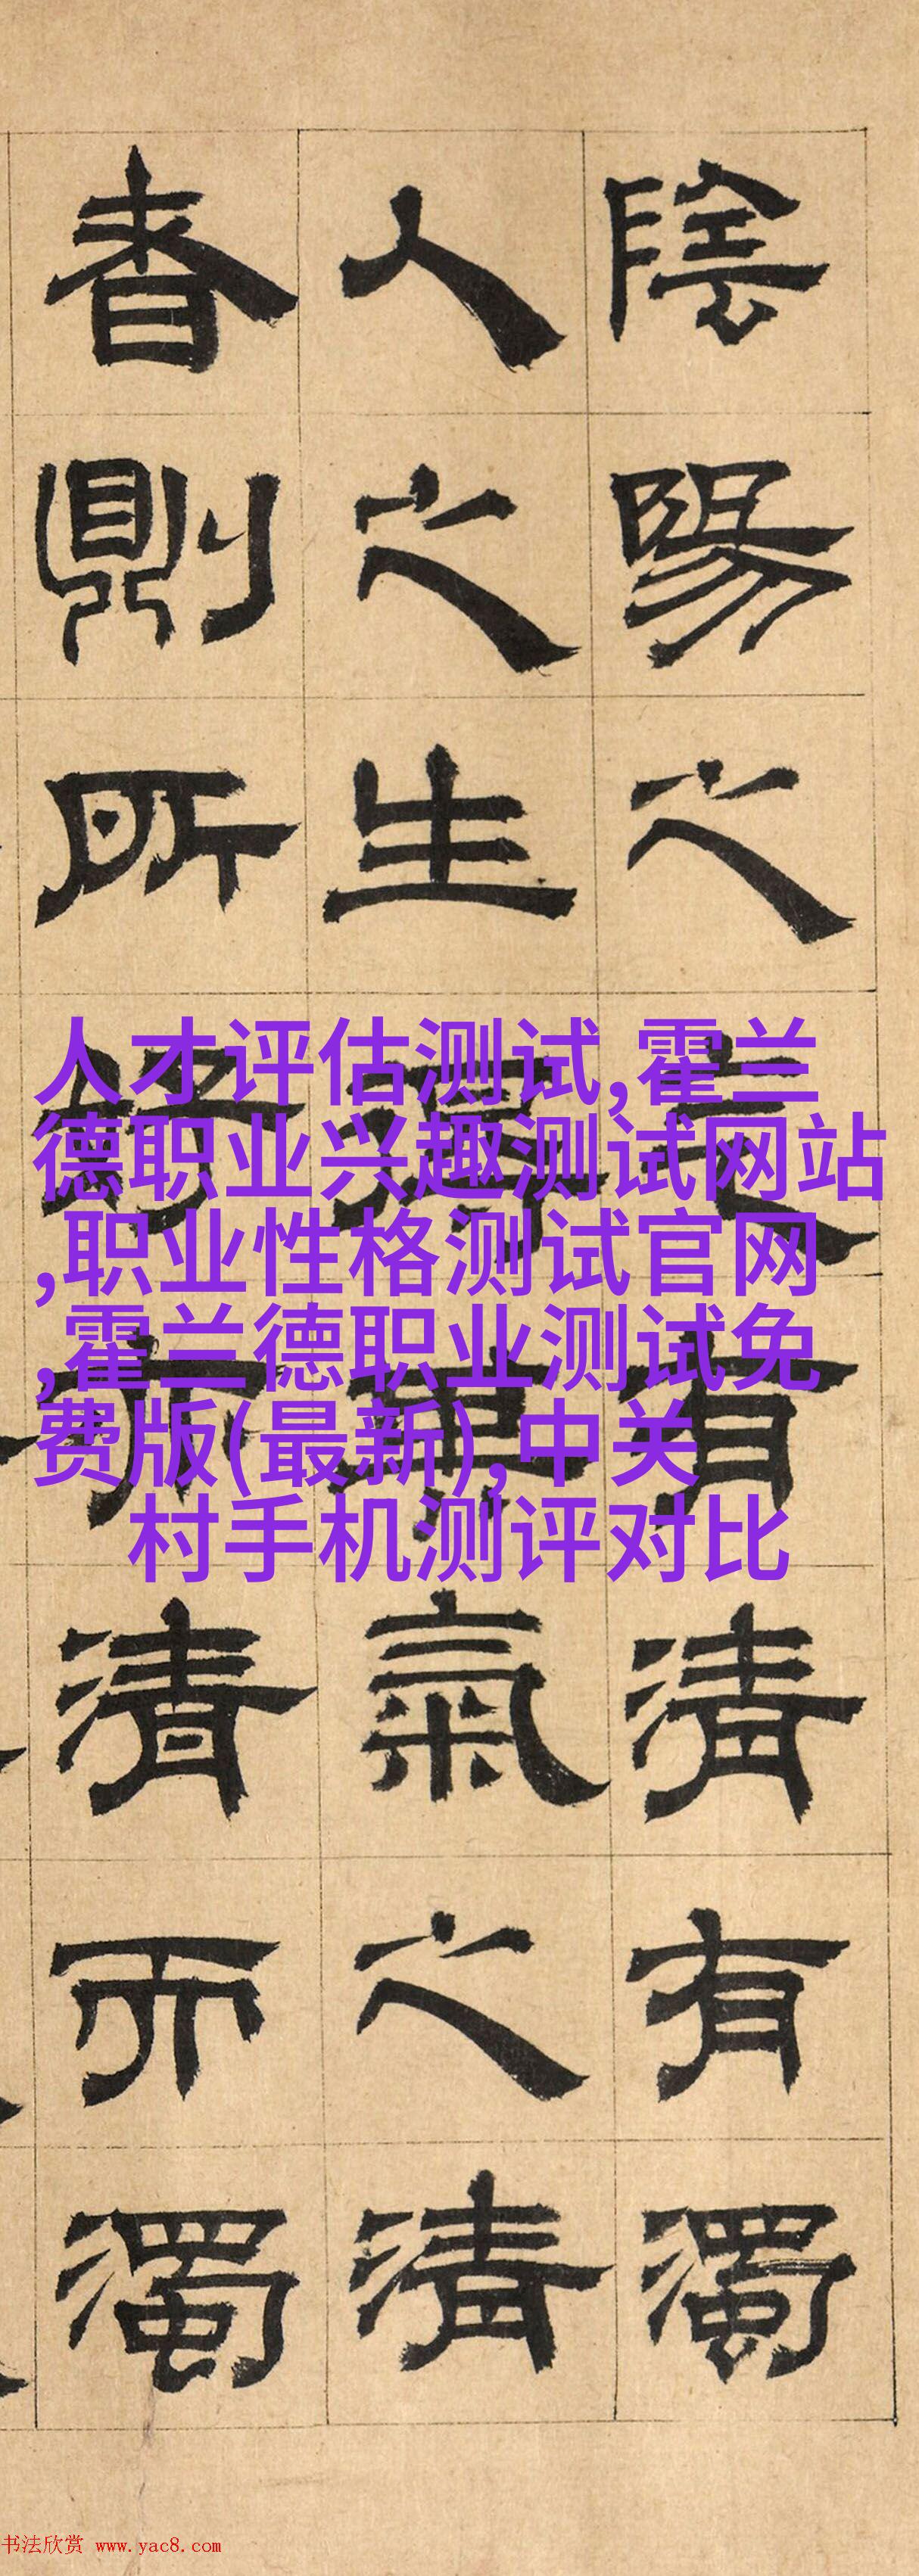 陰陽之氣有清有濁
人之生得氣之清
者則所清而濁
人才评估测试,霍兰
德职业兴趣测试网站
,职业性格测试官网
,霍兰德职业测试免
费版(最新),中关
村手机测评对比
书法欣赏 www.yac8.com